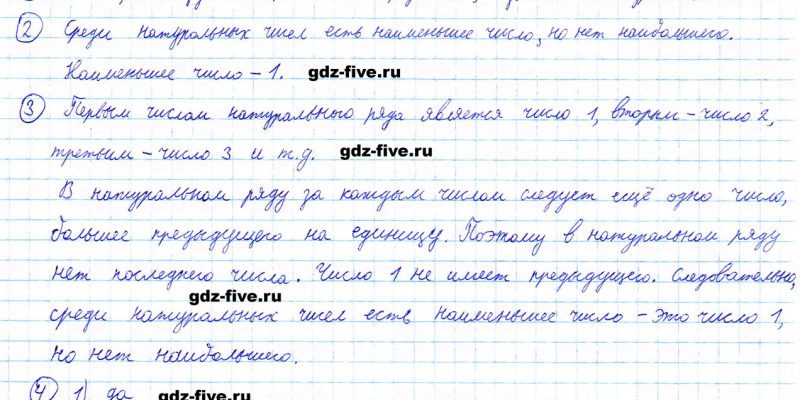 2 Среди натуральных чисел есть наименьшее число, но нет наибольшего.
Наименьшее число – 1. gdz-five.ru
3 Первым числом натурального ряда является число 1, вторым – число 2,
третьим – число 3 и т.д. gdz-five.ru
В натуральном ряду за каждым числом следует ещё одно число,
большее предыдущего на единицу. Поэтому в натуральном ряду
нет последнего числа. Число 1 не имеет предыдущего. Следовательно,
gdz-five.ru
среди натуральных чисел есть наименьшее число – это число 1,
но нет наибольшего.
4 1) да gdz-five.ru